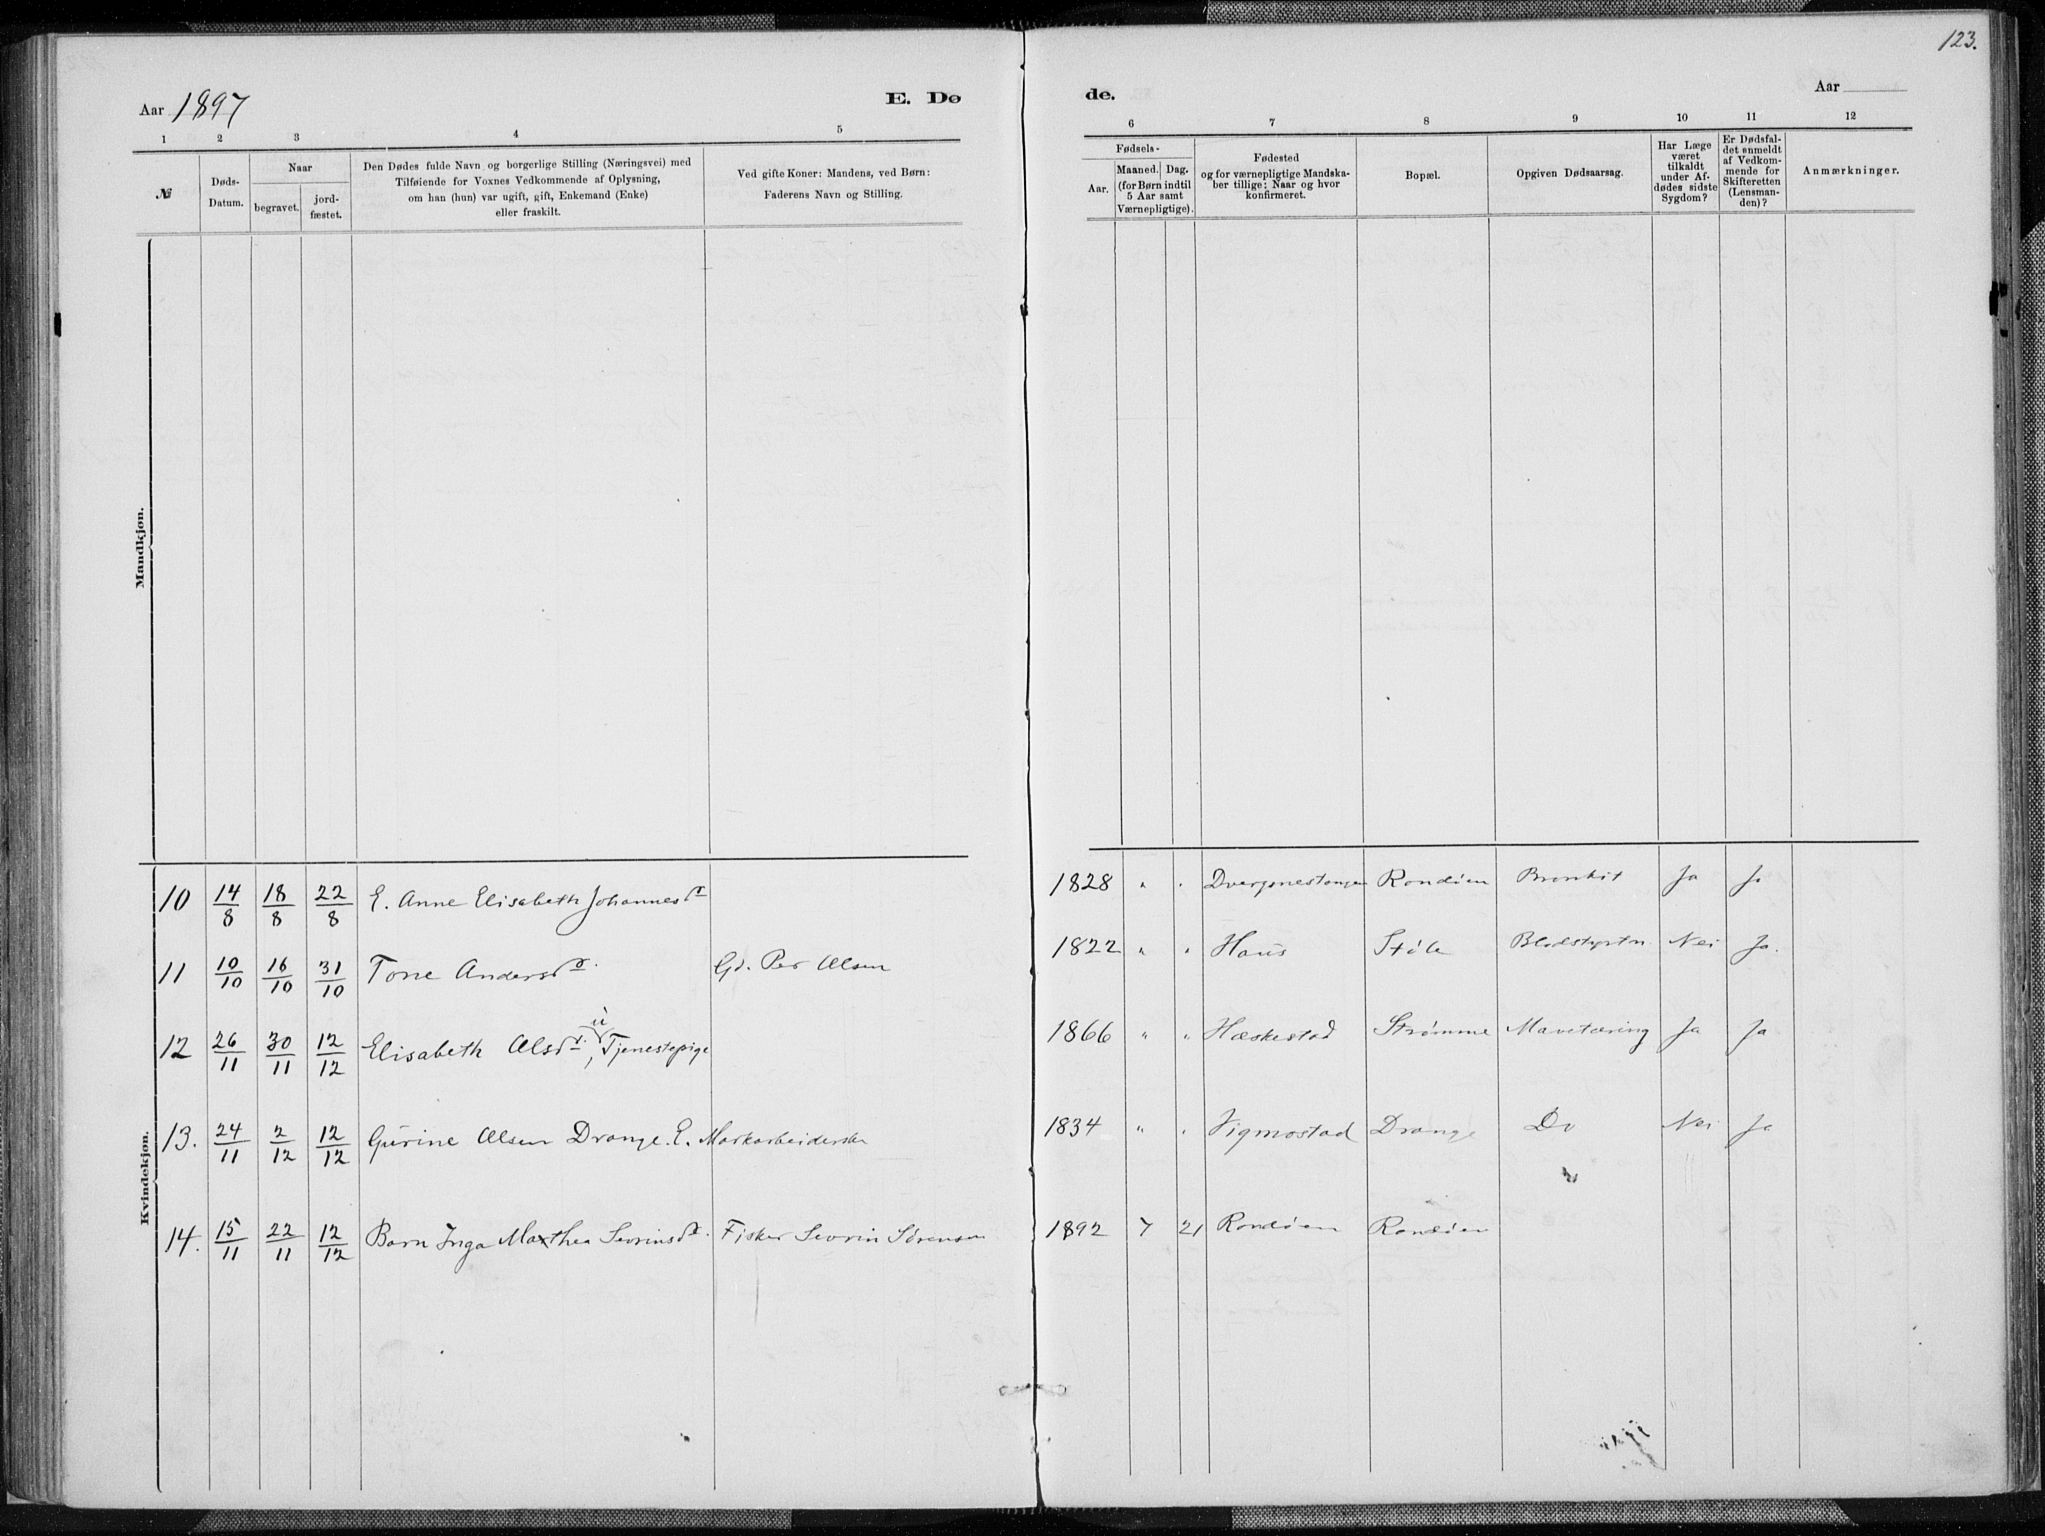 123.
Aar 1897 E. Dø de. Aar
1 2 3 4 5 6 7 8 9 10 11 12
№
Døds-
Datum.
Naar
begravet.
jord-
fæstet.
Den Dødes fulde Navn og borgerlige Stilling (Næringsvei) med
Tilføiende for Voxnes Vedkommende af Oplysning,
om han (hun) var ugift, gift, Enkemand (Enke)
eller fraskilt.
Ved gifte Koner: Mandens, ved Børn:
Faderens Navn og Stilling.
Fødsels-
Aar.
Maaned. Dag.
(for Børn indtil
5 Aar samt
Værnepligtige).
Fødested
og for værnepligtige Mandska-
ber tillige: Naar og hvor
konfirmeret.
Bopæl.
Opgiven Dødsaarsag.
Har Læge
været
tilkaldt
under Af-
dødes sidste
Sygdom?
Er Dødsfal-
det anmeldt
af Vedkom-
mende for
Skifteretten
(Lensman-
den)?
Anmærkninger.
Mandkjøn.
Kvindekjøn.
10 14/8 18/8 22/8 E. Anne Elisabeth Johannesdr 1828 " " Rondøen Bronkit Ja Ja
11 10/10 16/10 31/10 Tone Andersdr. Gd. Per Olsen 1822 " " Haus Støle Nei Ja.
12 26/11 30/11 12/12 Elisabeth Olsdr., u Tjenestepige 1866 " " Hæskestad Strømme Mavetæring Ja Ja
13. 24/11 2/12 12/12 Gurine Olsen Drange. E. Markarbeiderske 1834 " " Vigmostad Drange Do Nei Ja
14. 15/11 22/11 12/12 Barn Inga Marthea Sevrinsdr. Fisker Sevrin Sørensen 1892 7 21 Rondøen Rondøen